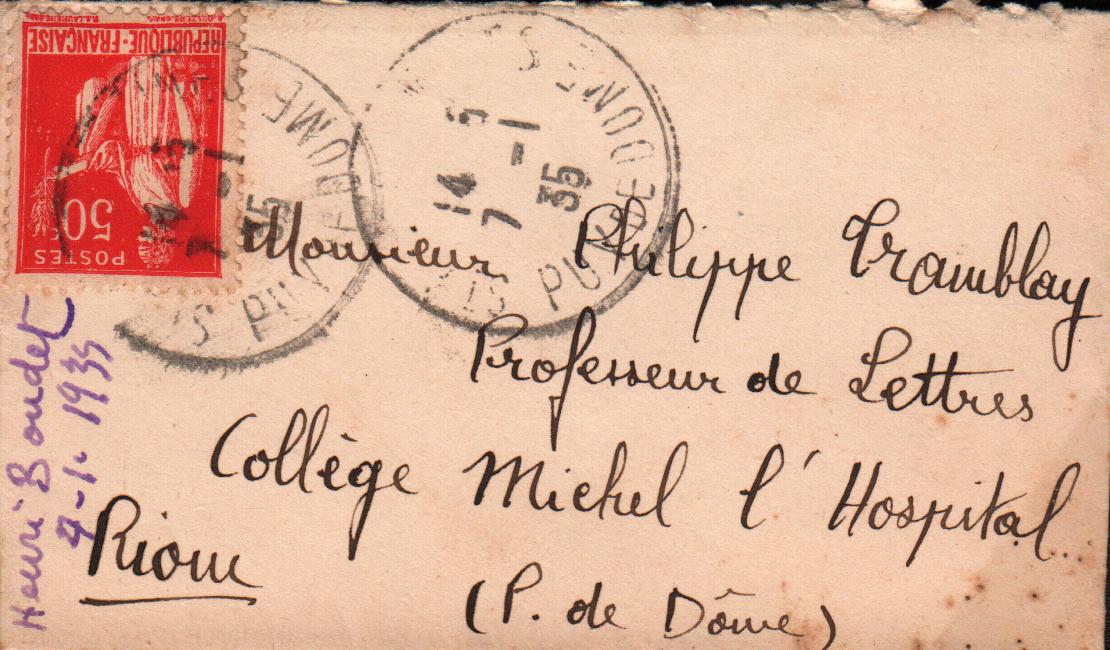 REPUBLIQUE·FRANÇAISE
50c
POSTES
14 5
7 -1
35
PUY DE DOME
14 5
7 -1
35
PUY DE DOME
Monsieur Philippe Tramblay
Professeur de Lettres
Collège Michel l'Hospital
Riom
(P. de Dôme)
Henri Boudet
7-1-1935